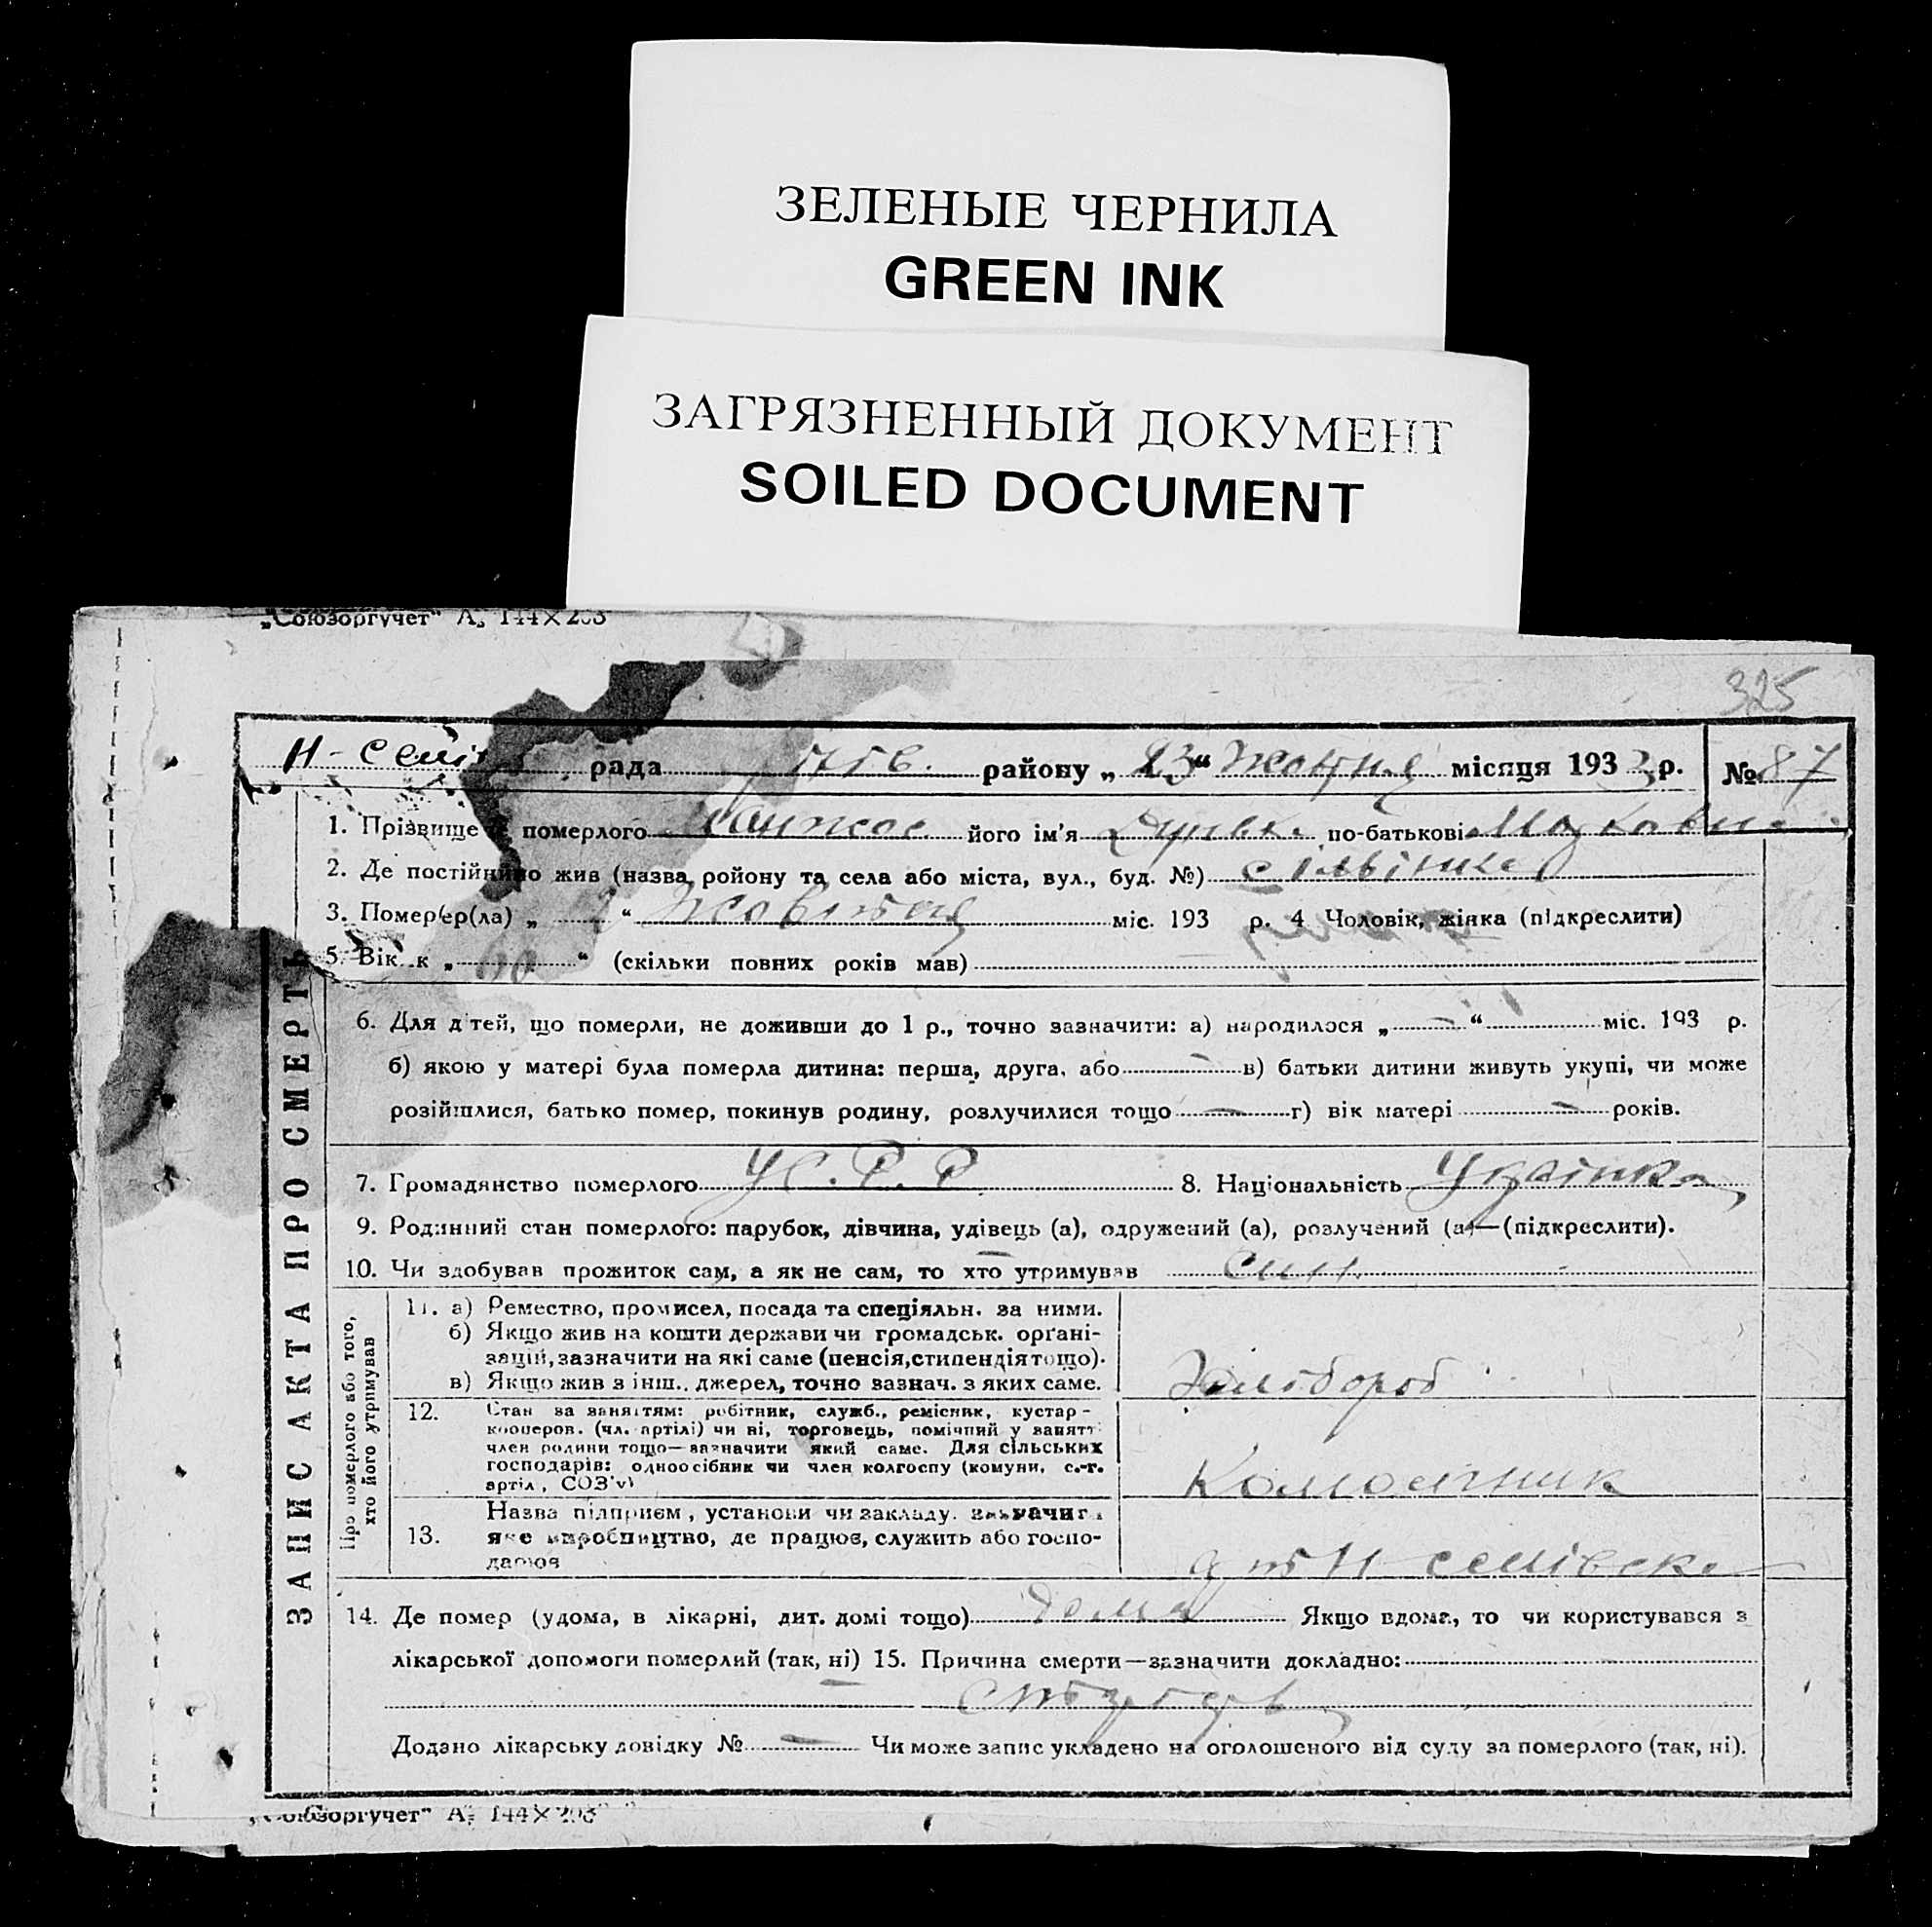 ЗЕЛЕНЫЕ ЧЕРНИЛА
GREEN INK
ЗАГРЯЗНЕННЫЙ ДОКУМЕНТ
SOILED DOCUMENT
„Союзоргучет“ А₅ 144×203
325
Н-Семів рада району „23“ Жовтня місяця 1933 р. № 87
1. Прізвище померлого його ім'я по-батькові
2. Де постійно жив (назва ройону та села або міста, вул., буд. №)
3. Помер(ла) „ “ Жовтня міс. 193 р. 4 Чоловік, жінка (підкреслити)
5. Вік „60“ (скільки повних років мав)
6. Для дітей, що померли, не доживши до 1 р., точно зазначити: а) народилося „–“ міс. 193 р.
б) якою у матері була померла дитина: перша, друга, або – в) батьки дитини живуть укупі, чи може
розійшлися, батько помер, покинув родину, розлучилися тощо – г) вік матері – років.
7. Громадянство померлого УС.Р.Р 8. Національність Українка
9. Родинний стан померлого: парубок, дівчина, удівець (а), одружений (а), розлучений (а)—(підкреслити).
10. Чи здобував прожиток сам, а як не сам, то хто утримував син
ЗАПИС АКТА ПРО СМЕРТЬ
Про померлого або того,
хто його утримував
11. а) Ремество, промисел, посада та спеціяльн. за ними.
б) Якщо жив на кошти держави чи громадськ. орґані-
зацій, зазначити на які саме (пенсія, стипендія тощо).
в) Якщо жив з інш. джерел, точно зазнач. з яких саме.
Хлібороб
12. Стан за заняттям: робітник, служб., ремісник, кустар-
кооперов. (чл. артілі) чи ні, торговець, помічний у занятт
член родини тощо—зазначити який саме. Для сільських
господарів: одноосібник чи член колгоспу (комуни, с.-г.
артіл, СОЗ'у)
Колгоспник
13. Назва підприєм, установи чи закладу, зазначит
яке виробництво, де працює, служить або госпо-
дарює
14. Де помер (удома, в лікарні, дит. домі тощо) дома Якщо вдома, то чи користувався з
лікарської допомоги померлий (так, ні) 15. Причина смерти—зазначити докладно:
Додано лікарську довідку № – Чи може запис укладено на оголошеного від суду за померлого (так, ні).
„Союзоргучет“ А₅ 144×203